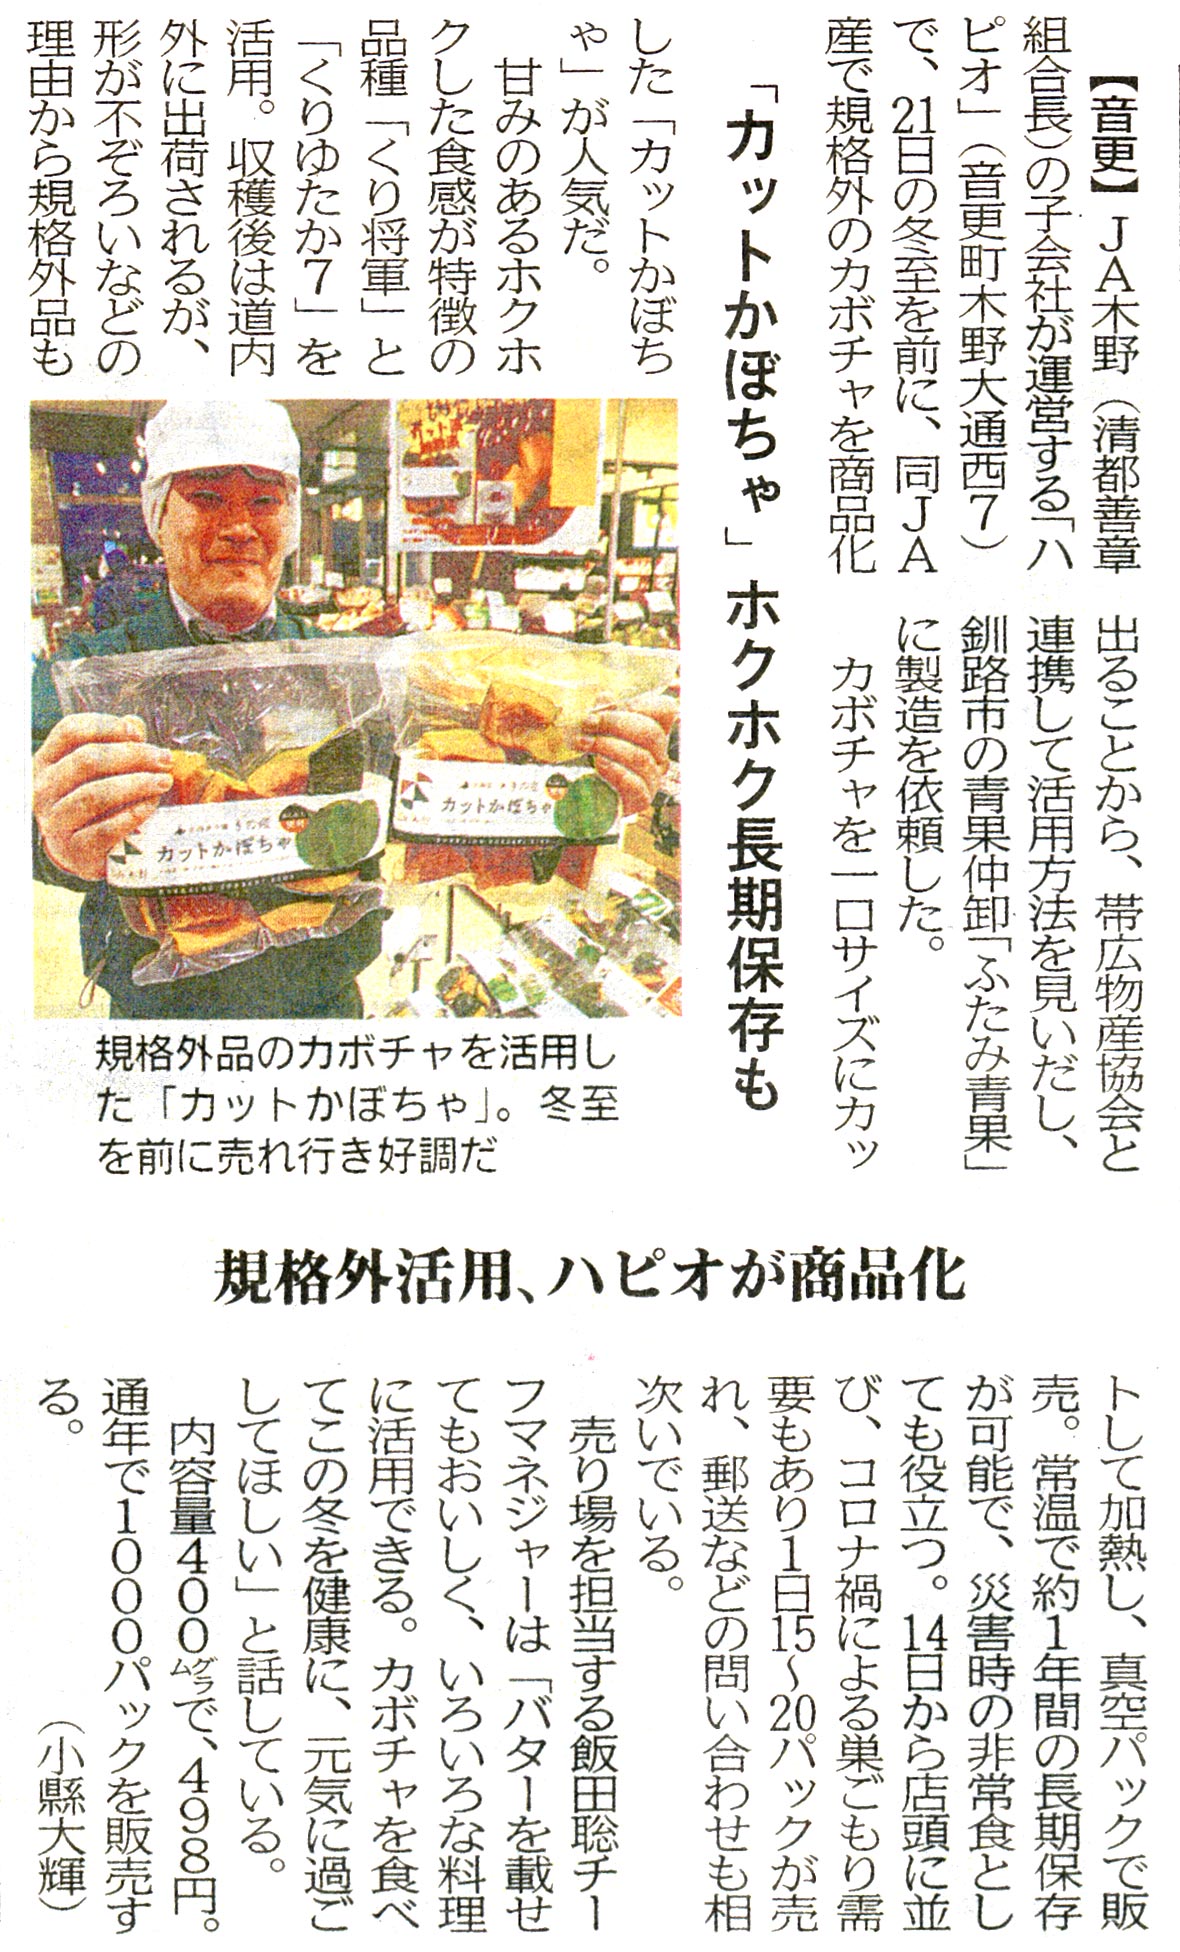 「カットかぼちゃ」ホクホク長期保存も
規格外活用、ハピオが商品化
【音更】ＪＡ木野（清都善章
組合長）の子会社が運営する「ハ
ピオ」（音更町木野大通西７）
で、21日の冬至を前に、同ＪＡ
産で規格外のカボチャを商品化
した「カットかぼち
ゃ」が人気だ。
甘みのあるホクホ
クした食感が特徴の
品種「くり将軍」と
「くりゆたか７」を
活用。収穫後は道内
外に出荷されるが、
形が不ぞろいなどの
理由から規格外品も
出ることから、帯広物産協会と
連携して活用方法を見いだし、
釧路市の青果仲卸「ふたみ青果」
に製造を依頼した。
カボチャを一口サイズにカッ
トして加熱し、真空パックで販
売。常温で約１年間の長期保存
が可能で、災害時の非常食とし
ても役立つ。14日から店頭に並
び、コロナ禍による巣ごもり需
要もあり１日15～20パックが売
れ、郵送などの問い合わせも相
次いでいる。
売り場を担当する飯田聡チー
フマネジャーは「バターを載せ
てもおいしく、いろいろな料理
に活用できる。カボチャを食べ
てこの冬を健康に、元気に過ご
してほしい」と話している。
内容量４００㌘で、４９８円。
通年で１０００パックを販売す
る。
（小縣大輝）
カットかぼちゃ
カットかぼちゃ
規格外品のカボチャを活用し
た「カットかぼちゃ」。冬至
を前に売れ行き好調だ